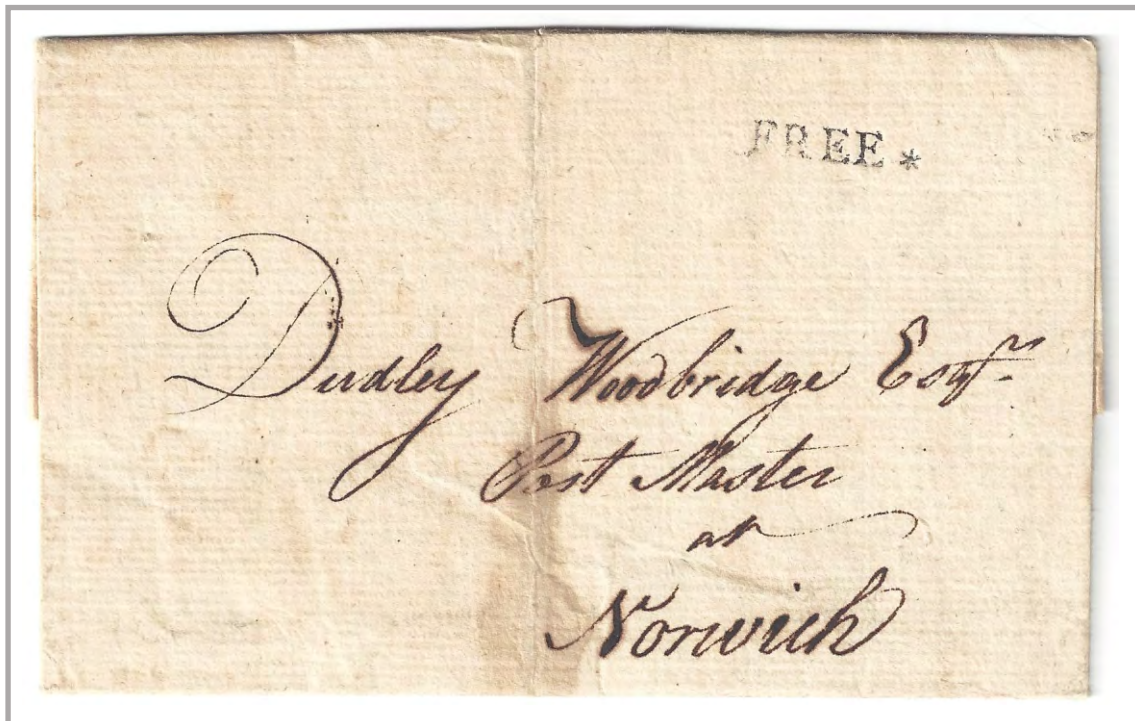 FREE *
Dudley Woodbridge Esqr.
Post Master
at
Norwich